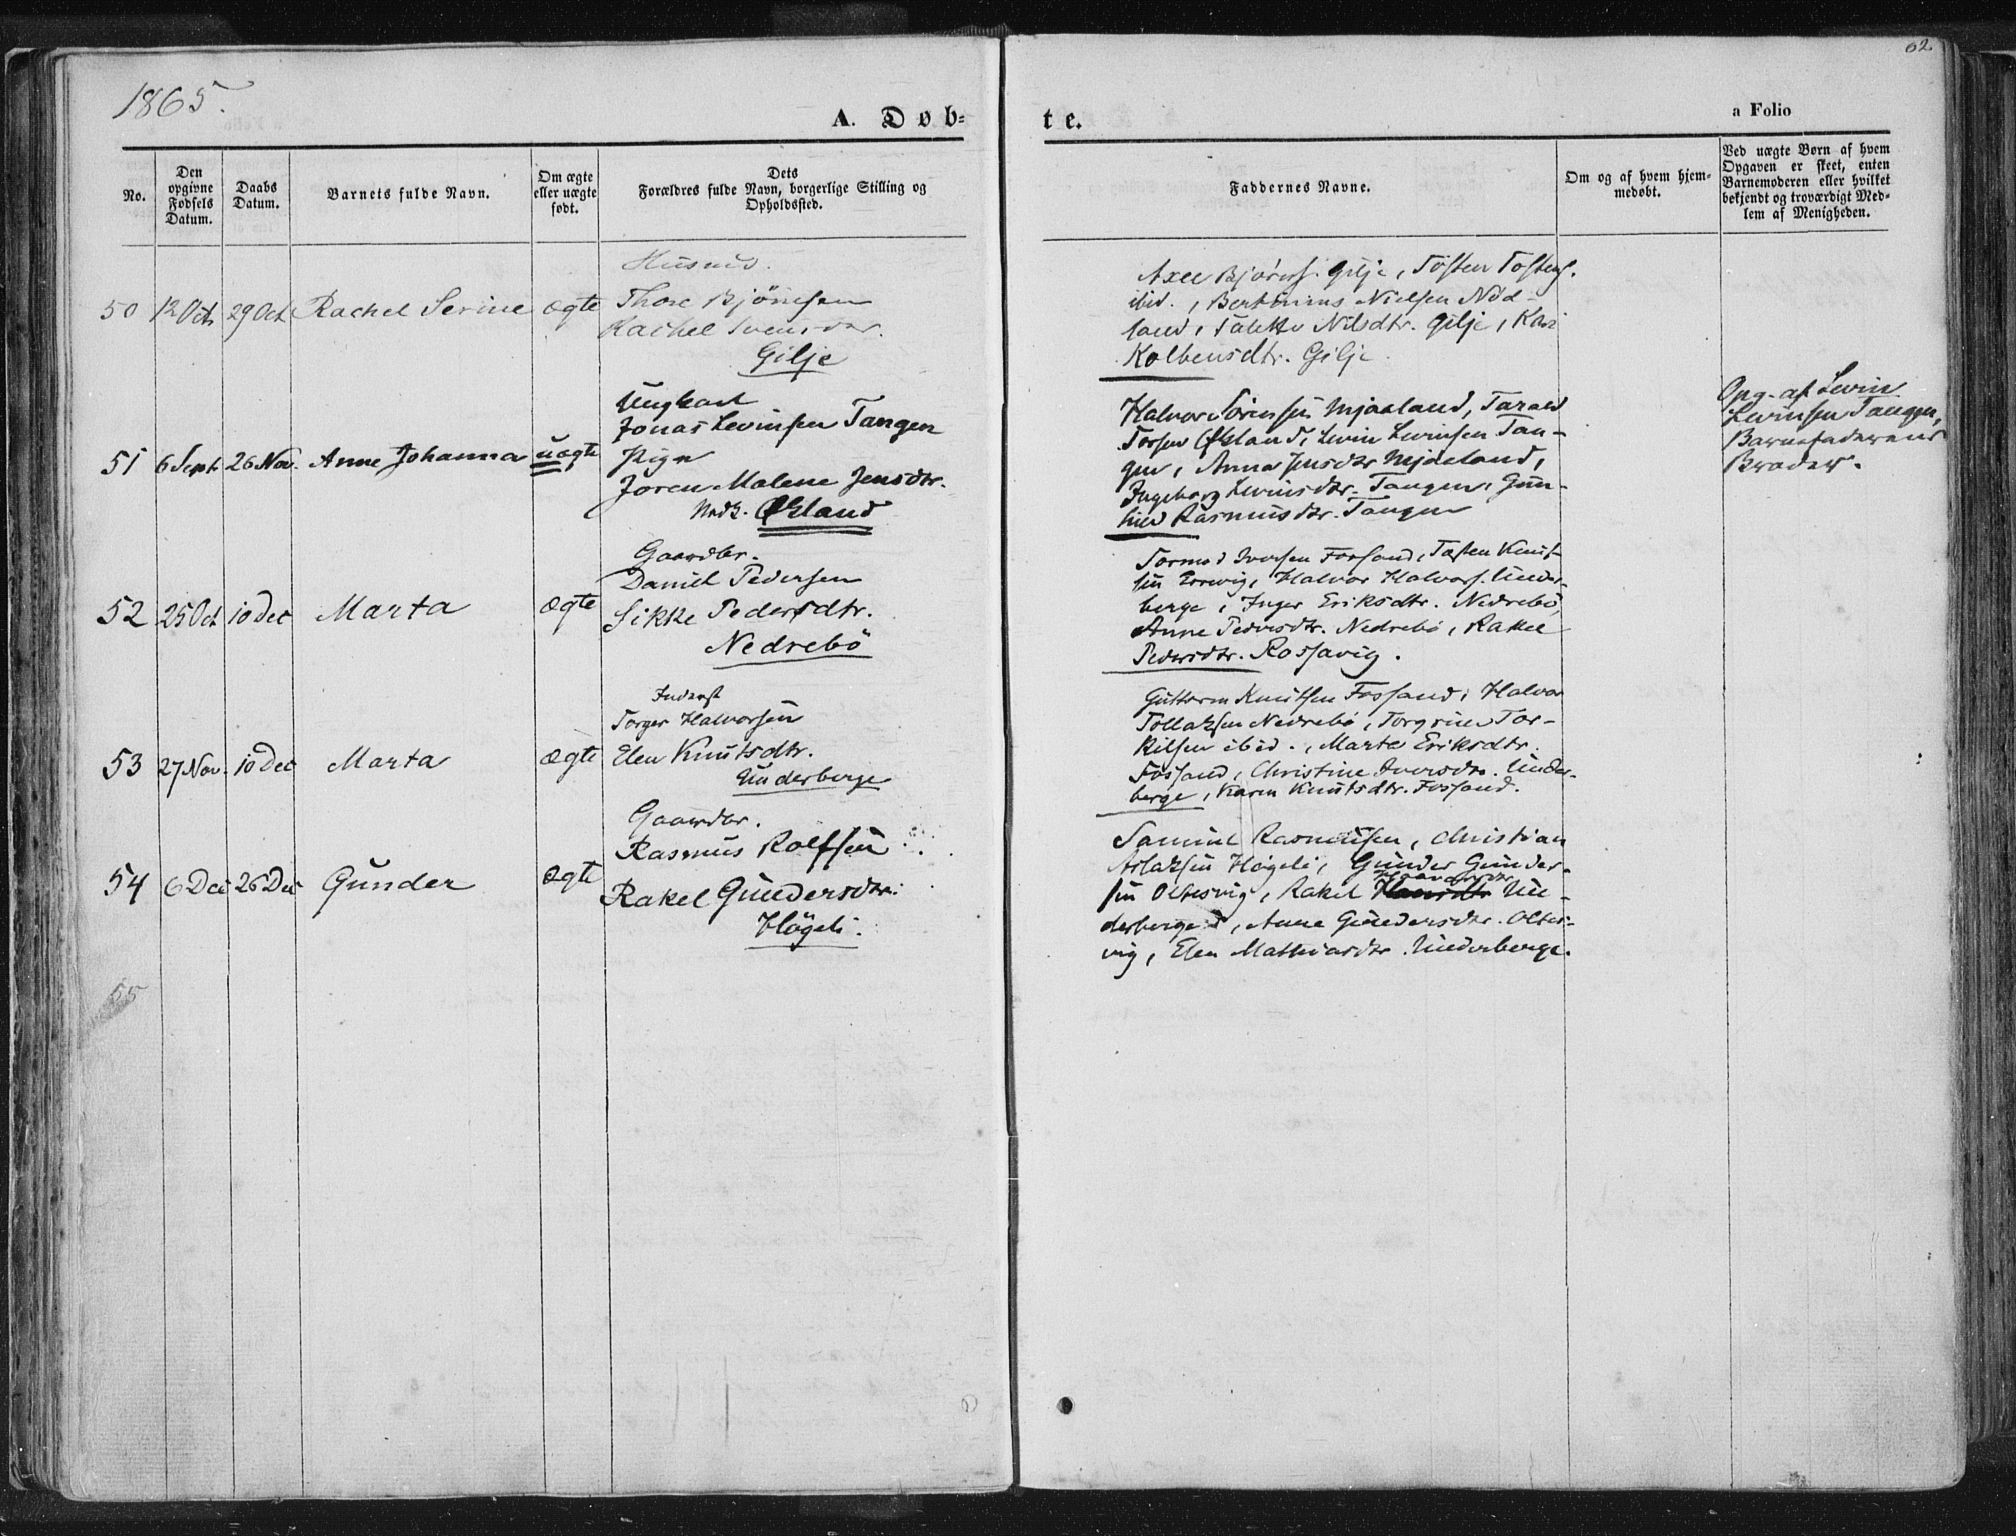 1865.
62
A. Døb-
te.
a Folio
No.
Den opgivne Fødsels Datum.
Daabs Datum.
Barnets fulde Navn.
Om ægte eller uægte født.
Dets Forældres fulde Navn, borgerlige Stilling og Opholdssted.
Faddernes Navne.
Om og af hvem hjemmedøbt.
Ved uægte Børn af hvem Opgaven er skeet, enten Barnemoderen eller hvilket bekjendt og troværdigt Medlem af Menigheden.
50 12 Oct 29 Oct Rachel Serine ægte
Husmd.
Thore Bjørnsen
Rachel Svensdtr.
Gilje
Axel Bjørns. Gilje, Tosten Tostens.
ibid., Bertinius Nielsen Nød-
land, Nilsdtr. Gilje, Kari
Kolbensdtr. Gilje.
51 6 Sept. 26 Nov. Anne Johanna uægte
Ungkarl
Jonas Levinsen Tangen
Pige
Joren Malene Jensdtr.
Øksland
Halvor Sørensen Mjaaland, Tarald
Torsen Øksland, Levin Levinsen Tan-
gen, Anna Jensdtr Mjaaland,
Ingeborg Levinsdtr. Tangen, Gun-
hild Rasmusdtr. Tangen
Opg. af Levin
Levinsen Tangen,
Barnefaderens
Broder.
52 25 Oct 10 Dec Marta ægte
Gaardbr.
Daniel Pedersen
Sikke Pedersdtr.
Nedrebö
Tormod Iversen Fossand, Tosten Knut-
sen Errevig, Halvor Halvors. Under-
berge, Inger Eriksdtr. Nedrebö,
Anne Pedersdtr. Nedrebö, Rakel
Pedersdtr. Rossavig.
53 27 Nov. 10 Dec Marta ægte
Inderst
Torger Halvorsen
Elen Knutsdtr.
Underberge
Guttorm Knutsen Fossand, Halvor
Tollaksen Nedrebö, Torgrim Tor-
kilsen ibid., Marta Eriksdtr.
Fossand, Christine Iversdtr. Under-
berge, Karen Knutsdtr. Fossand.
54 6 Dec 26 Dec Gunder ægte
Gaardbr.
Rasmus Rolfsen
Rakel Gundersdtr.
Högeli.
Samuel Rasmusen, Christian
Aslaksen Högeli, Gunder Gunder-
sen Oltesvig, Rakel Un-
derberge, Anne Gundersdtr. Oltes-
vig, Elen Mathiasdtr. Underberge.
55